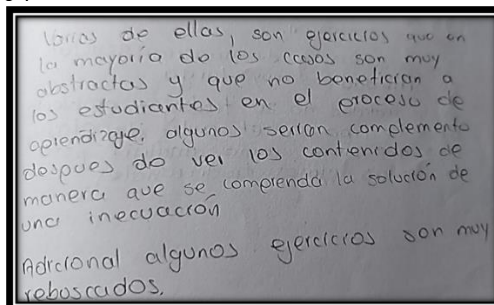 Varias de ellas, son ejercicios que en
la mayoria de los casos son muy
abstractas y que no benefician a
los estudiantes en el proceso de
aprendizaje. algunos serian complemento
despues de ver los contenidos de
manera que se comprenda la solución de
una inecuación
Adicional algunos ejercicios son muy
rebuscados.